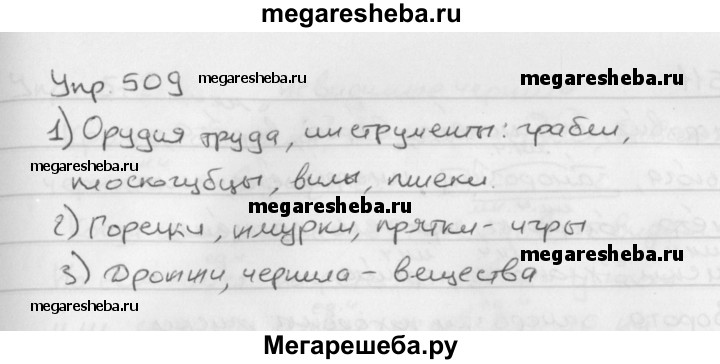 megaresheba.ru
Упр. 509 megaresheba.ru megaresheba.ru
1) Орудия труда, инструменты: грабли,
megaresheba.ru
плоскогубцы, вилы,
megaresheba.ru
2) Горелки, жмурки, прятки – игры
3) Дрожжи, чернила – вещества
megaresheba.ru megaresheba.ru megaresheba.ru
Мегарешеба.ру